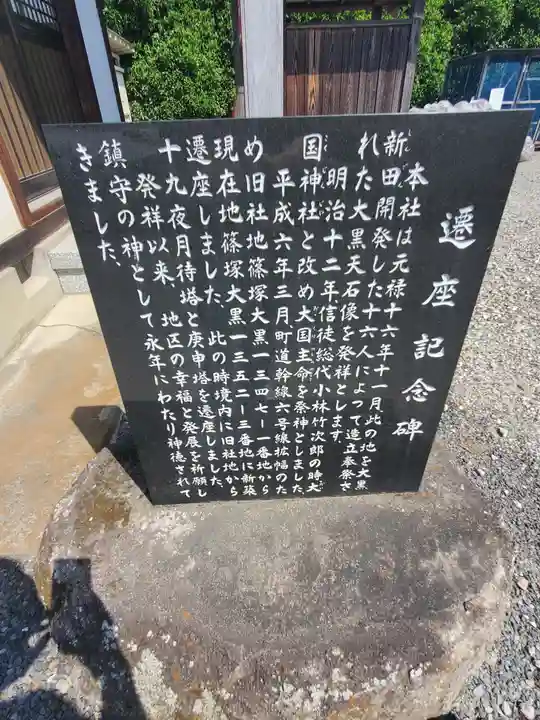 遷座記念碑
本社は元禄十六年十一月、此の地を大黒
新田開発した十六人によって造立奉祭さ
れた大黒天石像を発祥とします。
明治十二年信徒総代小林竹次郎の時、大
国神社と改め大国主命を祭神としました。
平成六年三月、町道幹線六号線拡幅のた
め旧社地篠塚大黒一三四七ー一番地から
現在地篠塚大黒一三五二ー三番地に新築
遷座しました。此の時境内に旧社地から
十九夜月待塔と庚申塔を遷座しました。
発祥以来、地区の幸福と発展を祈願し
鎮守の神として永年にわたり神徳されて
きました。